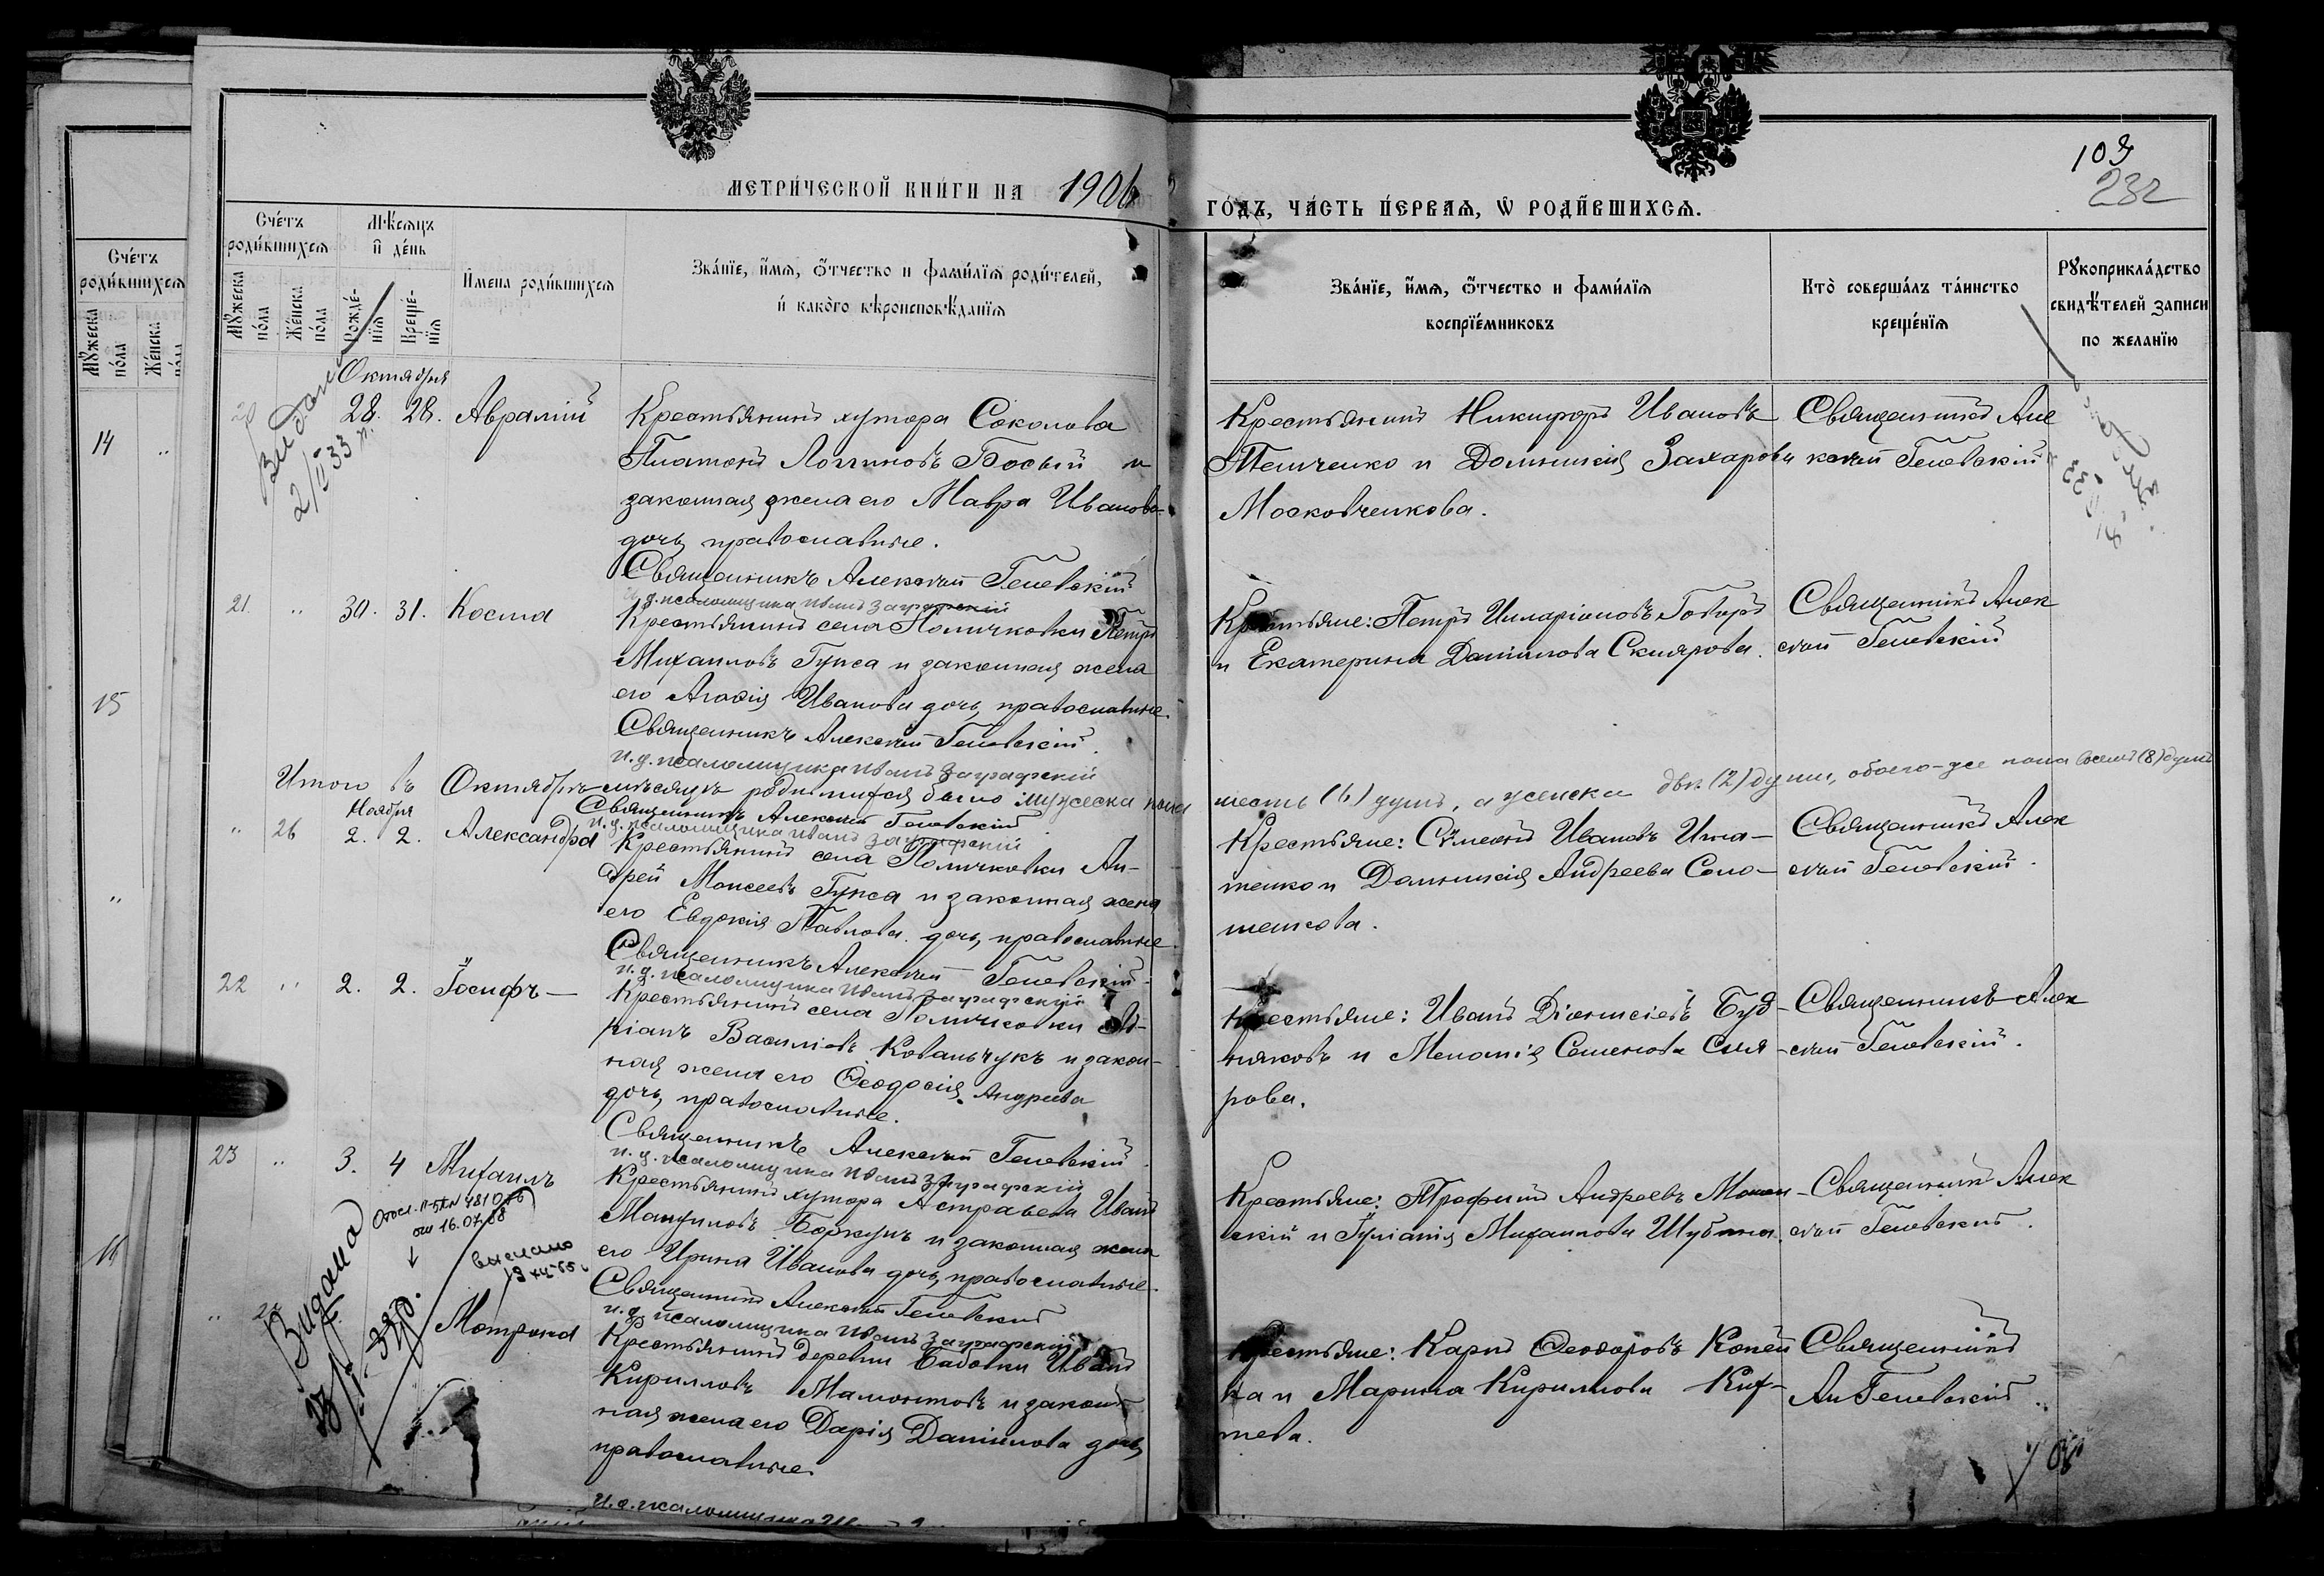 МЕТРИ́ЧЕСКОЙ КНИ́ГИ НА 1906
ГО́ДЪ, ЧА́СТЬ ПЕ́РВАѦ, Ѡ РОДИ́ВШИХСѦ.
103
232
Сче́тъ роди́вшихсѧ
Мꙋ́жеска по́ла
Же́нска
14
15
16
Сче́тъ
роди́вшихсѧ
Мꙋ́жеска по́ла
Же́нска по́ла
Мѣ́сѧцъ
и де́нь
Рожде́нїѧ
Креще́нїѧ
И҆мена роди́вшихсѧ
Зва́нїе, и҆́мѧ, ѻ҆́тчество и фами́лїѧ роди́телей,
и како́гѡ вѣроисповѣ́данїѧ
Зва́нїе, и҆́мѧ, ѻ҆́тчество и фами́лїѧ
воспрїе́мниковъ
Кто̀ соверша́лъ та́инство
креще́нїѧ
Рꙋкоприкла́дство
свидѣ́телей записи
по жела́нїю
Октября
20 28. 28. Авралій
Крестьянинъ хутора Соколова
Платонъ Логгиновъ Босый и
законная жена его Мавра Иванова
дочь, православные.
Священникъ Алексій Гелевскій
и.д. псаломщика Иванъ Заграфскій
Крестьянинъ Никифоръ Ивановъ
Темченко и Домникія Захарова
Московченкова.
Священникъ Але
ксій Гелевскій
2/II 33 г.
21. " 30. 31. Косма
Крестьянинъ села Поличковки Петръ
Михаиловъ Гупса и законная жена
его Агафія Иванова дочь, православные.
Священникъ Алексій Гелевскій.
и.д. псаломщика Иванъ Заграфскій
Крестьяне: Петръ Иларіоновъ Говоръ
и Екатерина Даніилова Склярова.
Священникъ Алек
сій Гелевскій
Итого въ Октябрѣ мѣсяцѣ родившихся было мужеска пола
шесть (6) душъ, а женска двѣ (2) души, обоего-же пола восемь (8) душъ
Священникъ Алексій Гелевскій
и.д. псаломщика Иванъ Заграфскій
Ноября
" 26 2. 2. Александра
Крестьянинъ села Поличковки Ан-
дрей Моисеевъ Гупса и законная жена
его Евдокія Павлова дочь, православные.
Священникъ Алексій Гелевскій
и.д. псаломщика Иванъ Заграфскій
Крестьяне: Сѵмеонъ Ивановъ Игна-
тенко и Домникія Андреева Соло-
шенкова.
Священникъ Алек
сій Гелевскій.
22 " 2. 2. Іосифъ
Крестьянинъ села Поличковки Ад-
ріанъ Василіевъ Ковальчукъ и закон-
ная жена его Ѳеодосія Андреева
дочь, православные.
Священникъ Алексій Гелевскій.
и.д. псаломщика Иванъ Заграфскій
Крестьяне: Иванъ Діонисіевъ Буд-
няковъ и Меланія Семенова Скля-
рова.
Священникъ Алек
сій Гелевскій.
23 " 3. 4 Михаилъ
Крестьянинъ хутора Астравена Иванъ
Боркунъ и законная жена
его Ирина Иванова дочь, православные.
Священникъ Алексій Гелевскій
и.д. псаломщика Иванъ Заграфскій
Крестьяне: Трофимъ Андреевъ
и Іуліанія Михаилова Шубина.
Священникъ Алек
сій Гелевскій.
от 16.07.88
выслано
Видана
" Матрона
Крестьянинъ деревни Бабовки Иванъ
Кирилловъ Мамонтовъ и закон-
ная жена его Дарія Даніилова дочь,
православные.
и.д. псаломщика
Крестьяне: Карпъ Ѳеодоровъ Копей
ка и Марина Кириллова
Священникъ
Ал Гелевскій